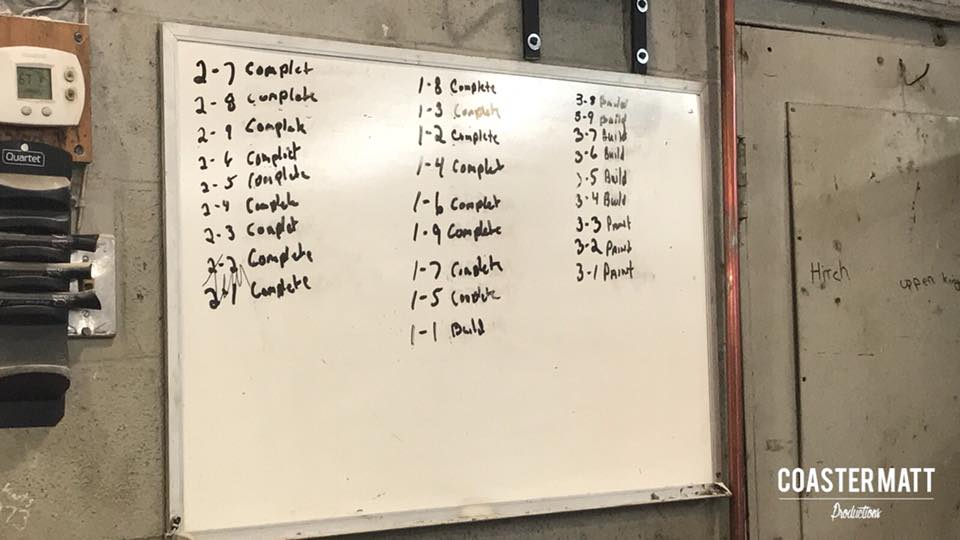 2-7 Complet
2-8 Complate
2-9 Complate
2-6 Complict
2-5 Complete
2-4 Complete
2-3 Complet
2-2 Complete
2-1 Complete
1-8 Complete
1-3 Complete
1-2 Complete
1-4 Complet
1-6 Complet
1-9 Complete
1-7 Complete
1-5 Complete
1-1 Build
3-8
3-9
3-7 Build
3-6 Build
3-5 Build
3-4 Build
3-3 Praint
3-2 Praint
3-1 Praint
Quartet
Hitch
upper king
73
COASTERMATT
Productions